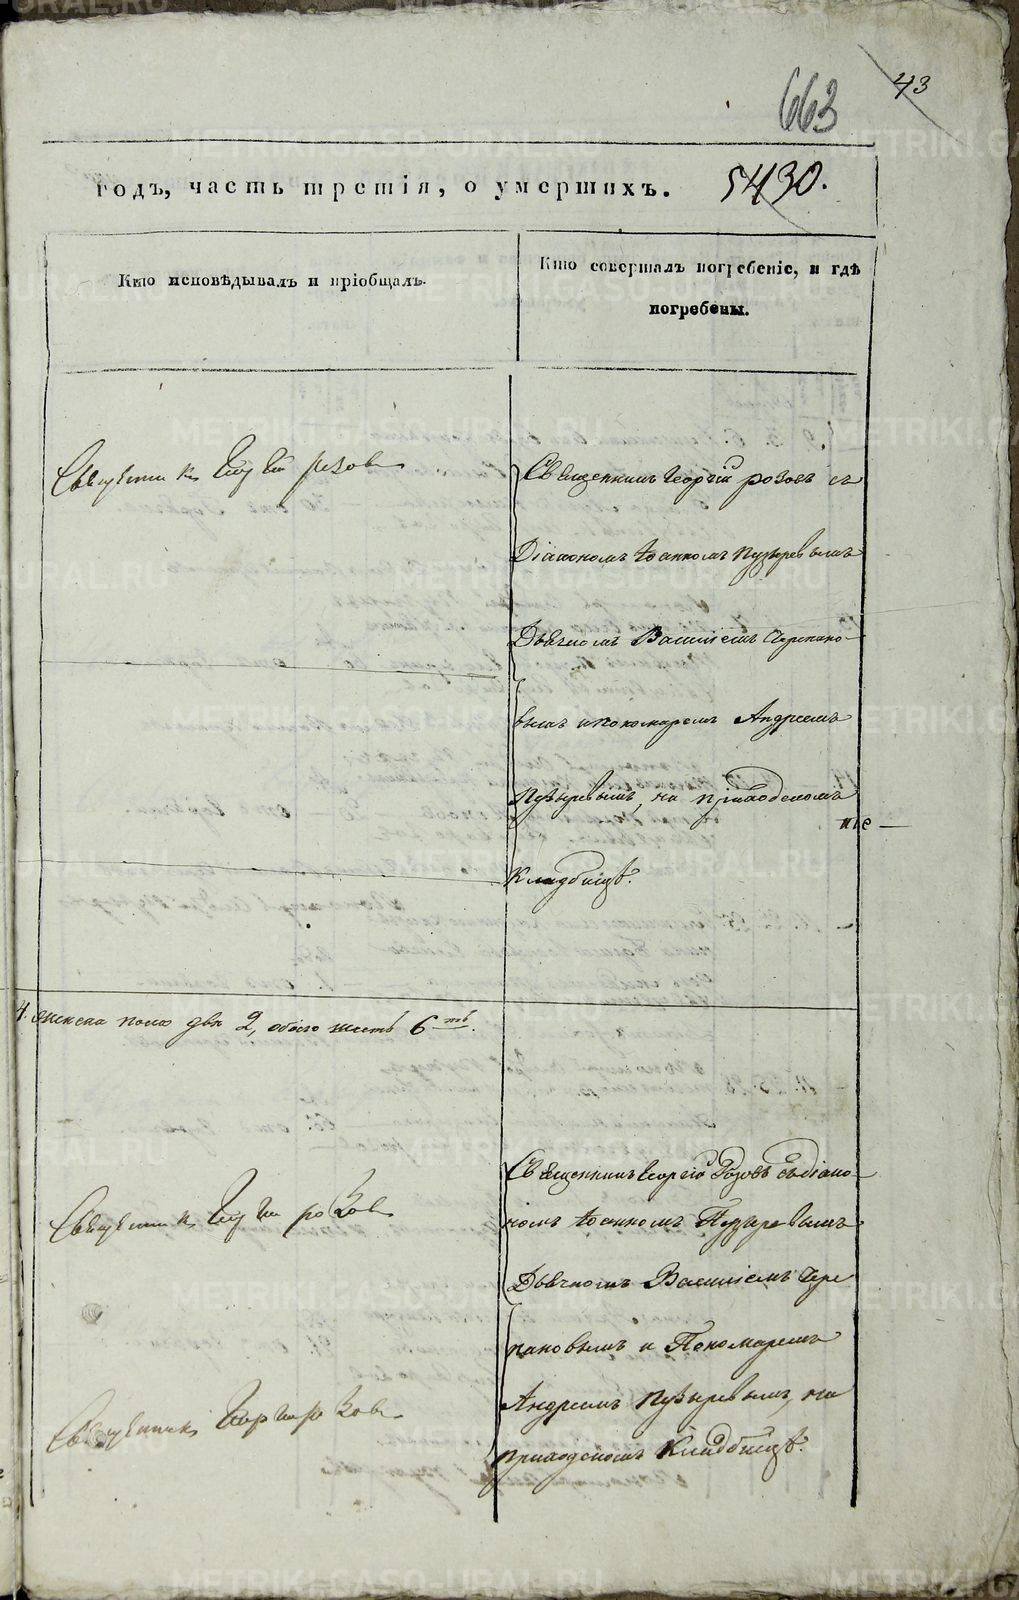 663
43
годъ, часть третія, о умершихъ. 5430.
Кто исповѣдывалъ и пріобщалъ.
Кто совершалъ погребеніе, и гдѣ
погребены.
Священникъ Георгій Розовъ
Священникъ Георгій Розовъ съ
Діакономъ Іоанномъ Пузыревымъ
Дьячкомъ Василіемъ Черепано-
вымъ и пономаремъ Андреемъ
Пузыревымъ, на приходскомъ
Кладбищѣ.
4. женска пола два 2, обоего шесть 6ть.
Священникъ Георгій Розовъ
Священникъ Георгій Розовъ съ діако-
номъ Іоанномъ Пузыревымъ
Дьячкомъ Василіемъ Чере
пановымъ и Пономаремъ
Андреемъ Пузыревымъ, на
приходскомъ Кладбищѣ.
Священникъ Георгій Розовъ